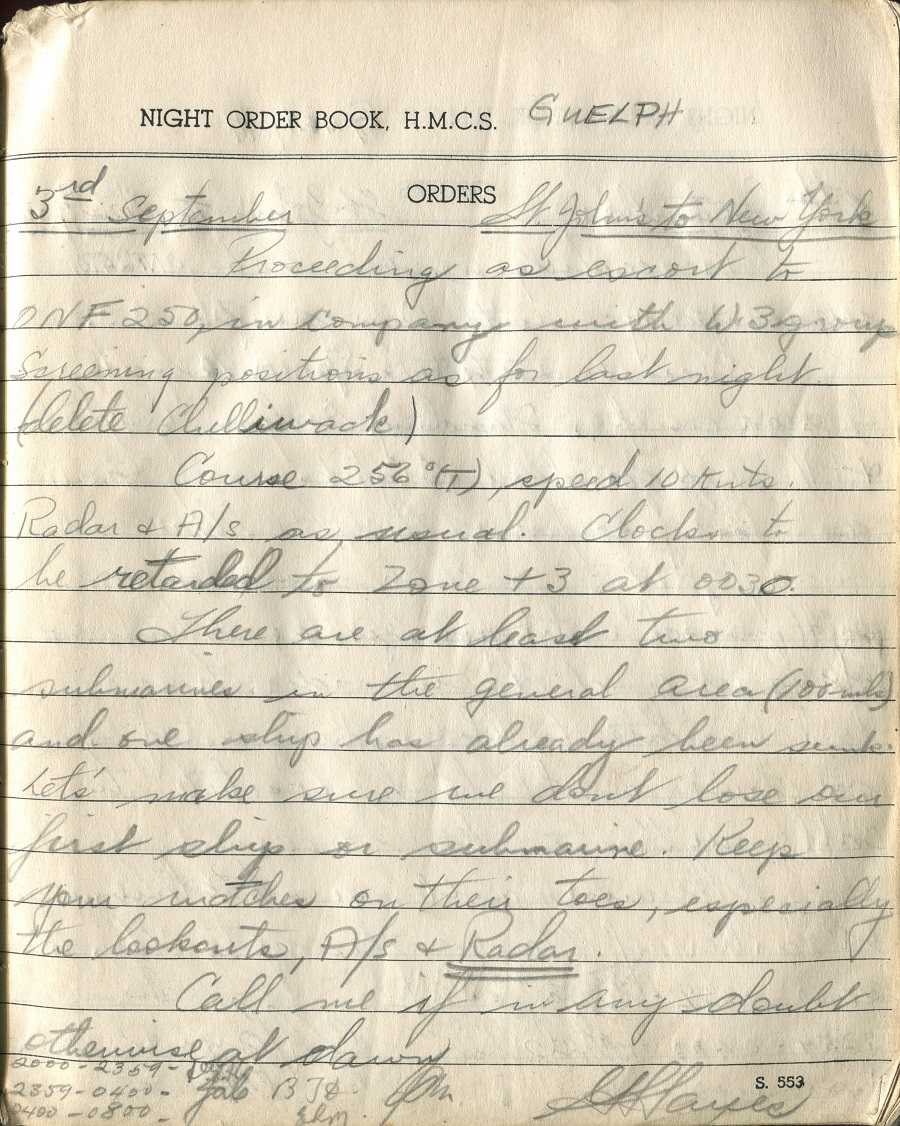 NIGHT ORDER BOOK, H.M.C.S. GUELPH
ORDERS
3rd September St. John's to New York
Proceeding as escort to
ONF 250, in company with W-3 group
Screening positions as for last night
(delete Chilliwack)
Course 256°(T), speed 10 knts.
Radar & A/s as usual. Clocks to
be retarded to Zone +3 at 0030.
There are at least two
submarines in the general area (100 mls)
and one ship has already been sunk.
Let's make sure we don't lose our
first ship or submarine. Keep
your watches on their toes, especially
the lookouts, A/s & Radar.
Call me if in any doubt
otherwise at dawn
2000-2359-
2359-0400-
0400-0800-
S. 553